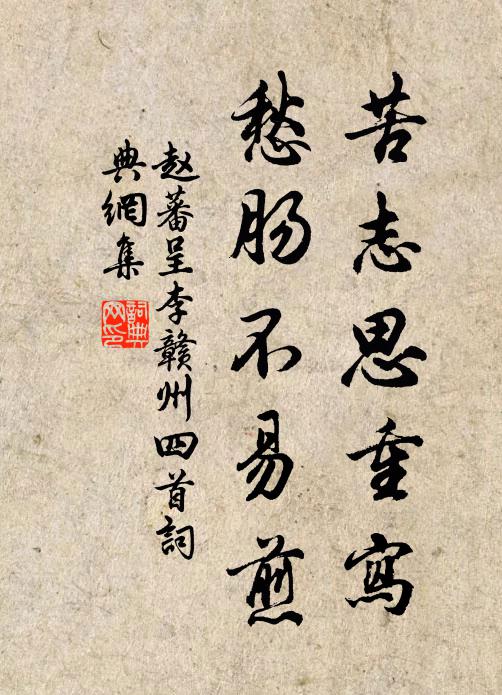 苦志思重寫
愁肠不易煎
赵蕃呈李赣州四首詞
典網集
詞典
网印